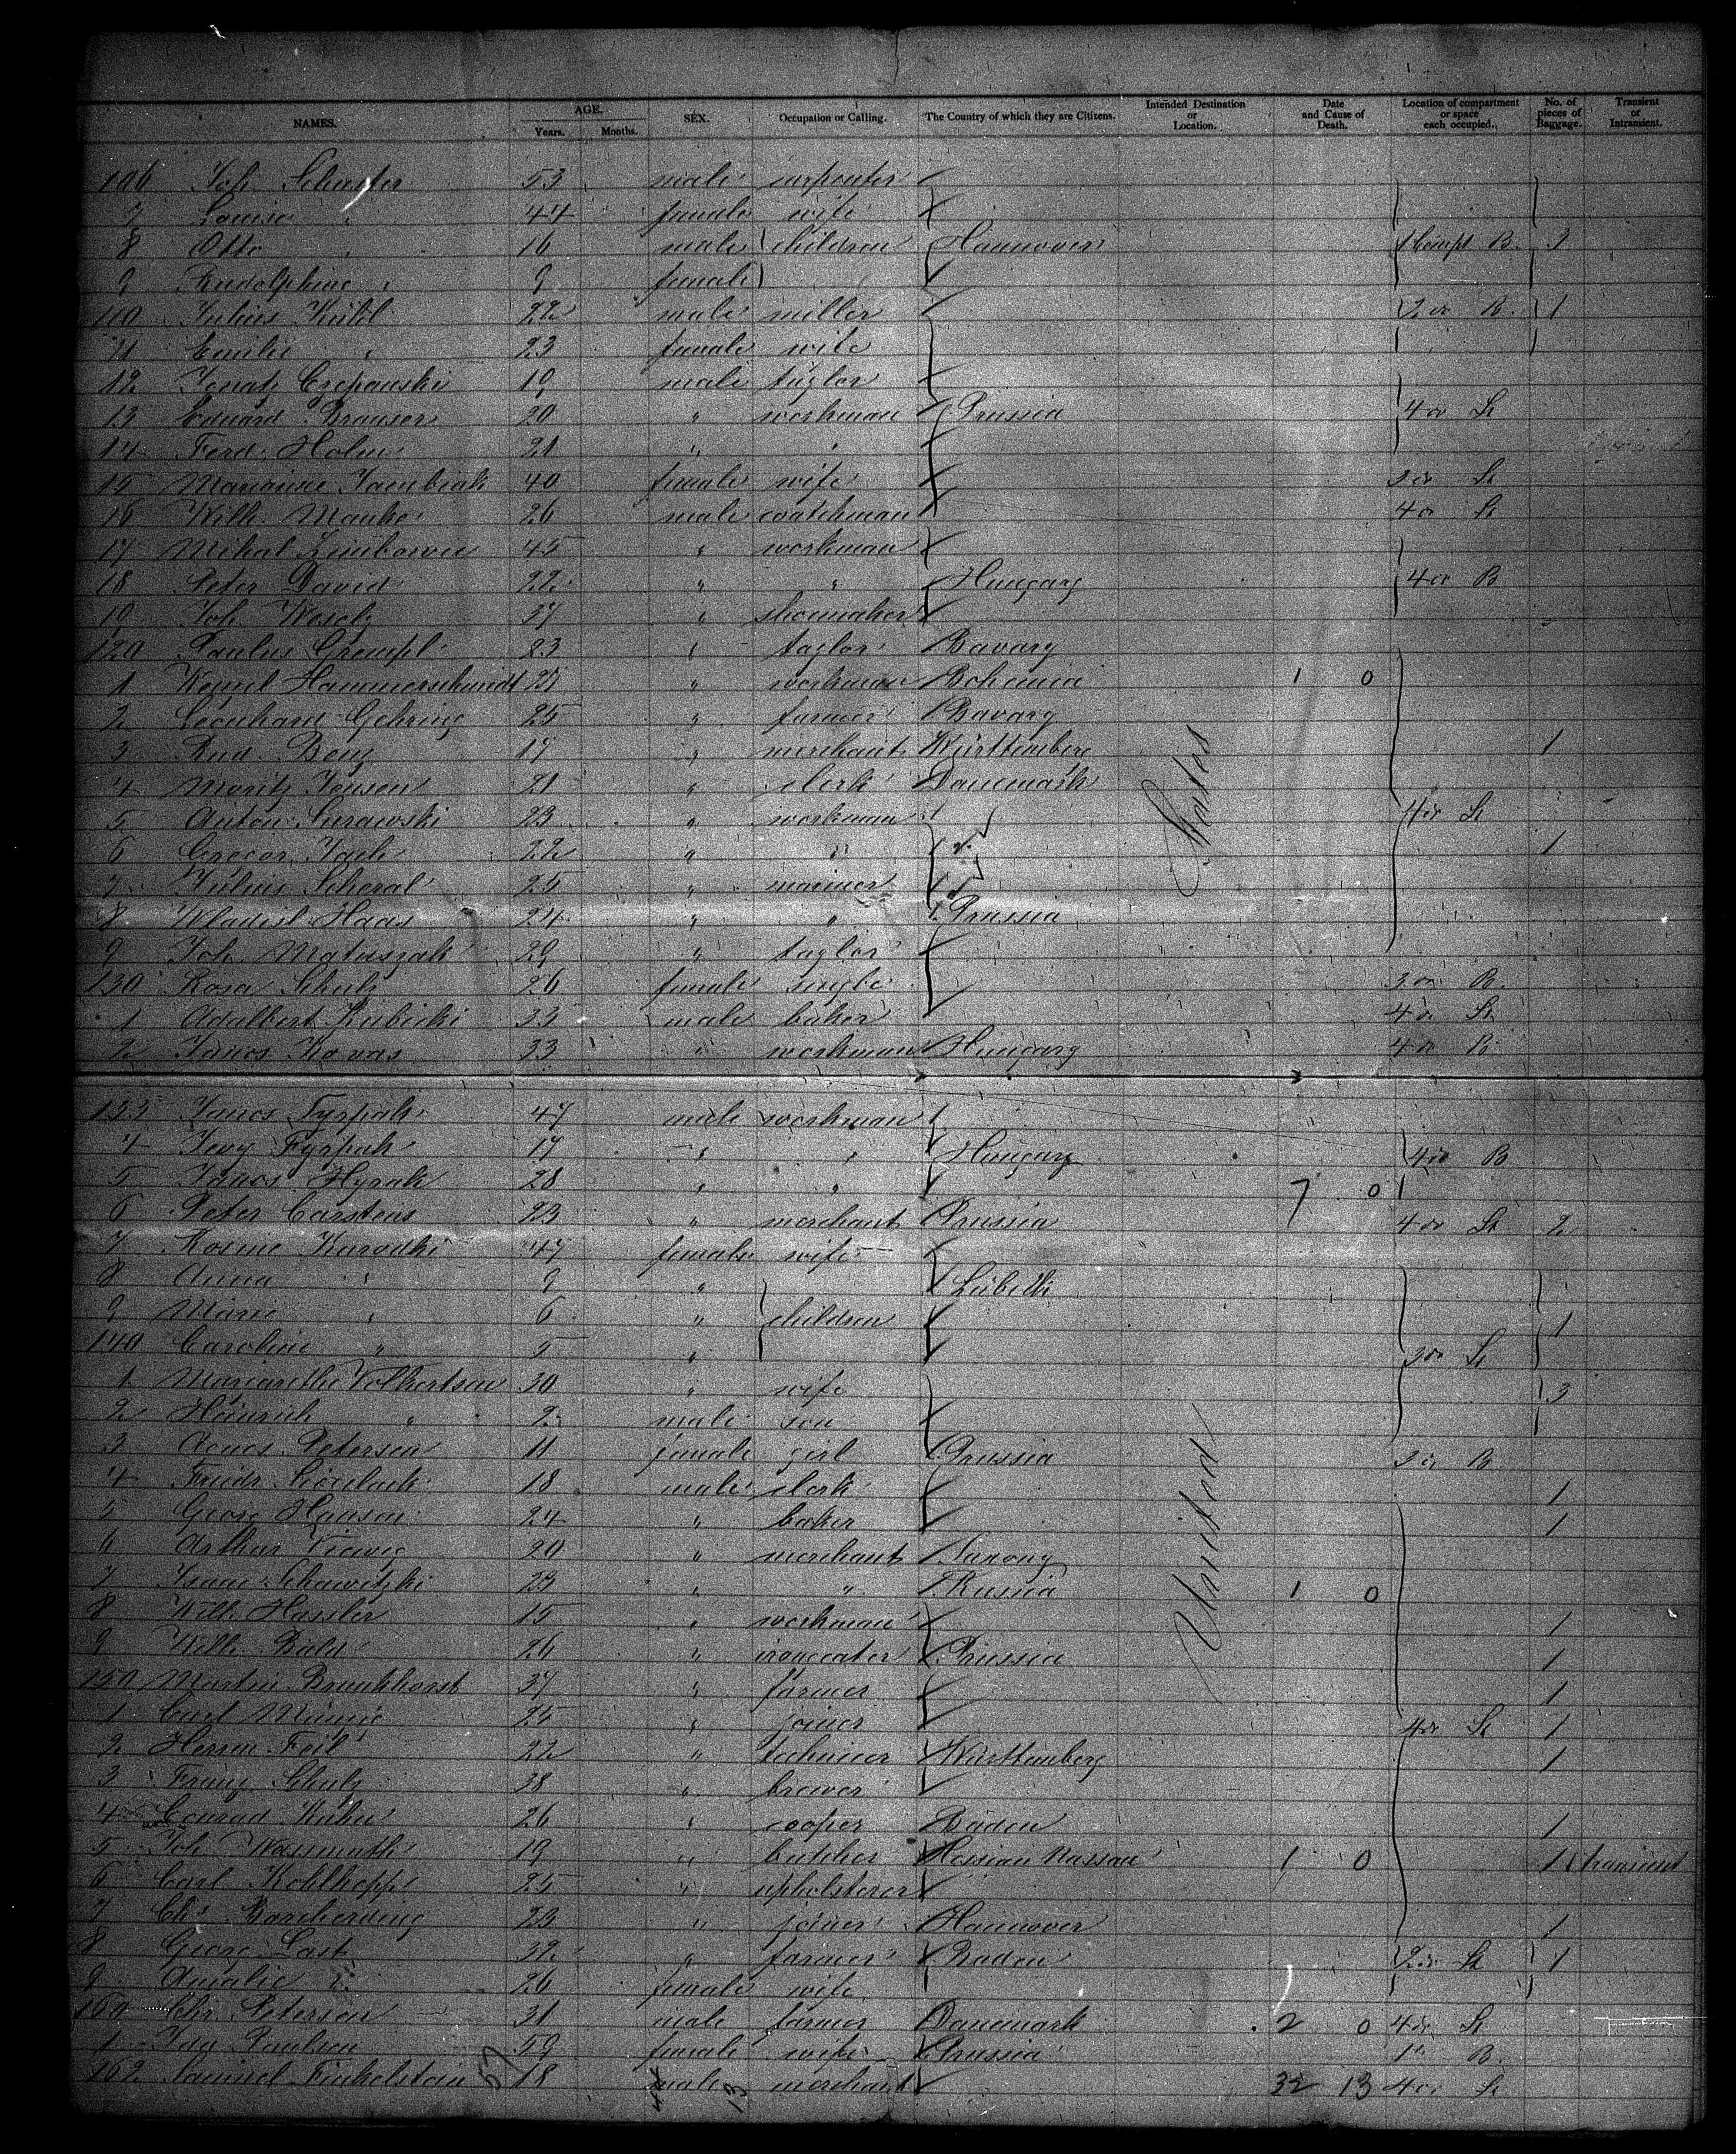 NAMES. AGE. Years. Months. SEX. Occupation or Calling. The Country of which they are Citizens. Intended Destination or Location. Date and Cause of Death. Location of compartment or space each occupied. No. of pieces of Baggage. Transient or Intransient.
106 Joh. Schuster 53 male carpenter
7 Louise " 44 female wife
8 Otto " 16 male children Hannover 1 Compt B. 3
9 Rudolphine " 9 female
110 Julius Kühl 22 male miller 2 do B. 1
11 Emilie " 23 female wife
12 Ignatz Czepanski 19 male taylor
13 Eduard Brauser 20 " workman Prussia 4 do St
14 Ferd. Holm 21 " "
15 Marianne Jacubiak 40 female wife 3 do St
16 Wilh. Manke 26 male watchman 4 do St
17 Mihal 45 " workman
18 Peter David 22 " " Hungary 4 do B
19 Joh. Wesely 37 " shoemaker
120 Paulus Grempl 23 " taylor Bavary
1 Wenzel Hammerschmidt 27 " workman Bohemia 1 0
2 Leonhard Gehring 25 " farmer Bavary
3 Rud. Benz 17 " merchant Württemberg 1
4 Moritz Jensen 21 " clerk Danemark
5 Anton Surawski 23 " workman 4 do St
6 Gregor 22 " " 1
7 Julius Scheral 25 " mariner
8 Wladisl. Haas 24 " " Prussia
9 Joh. Matuszak 29 " taylor
130 Rosa Schulz 26 female single 3 do B.
1 Adalbert Kubicki 33 male baker 4 do St
2 Janos Kovas 33 " workman Hungary 4 do B
States
133 Janos Fyrpak 47 male workman
4 Fyrpak 17 " " Hungary 4 do B
5 Janos Hyrak 28 " " 7 0
6 Peter Carstens 23 " merchant Prussia 4 do St 2
7 Rosine 47 female wife
8 Anna " 9 " Lübeck
9 Marie " 6 " children 1
140 Caroline " 5 " 3 do St
1 Margarethe Volkertsen 30 " wife 3
2 Heinrich " 2 male son
3 Agnes Petersen 11 female girl Prussia 3 do B
4 Friedr. 18 male clerk 1
5 Georg Hansen 24 " baker 1
6 Arthur Vieweg 20 " merchant Saxony
7 Isaac Schawitzki 23 " " Russia 1 0
8 Wilh. Hassler 15 " workman 1
9 Wilh. Bald 26 " Prussia 1
150 Martin Brunkhorst 37 " farmer 1
1 Carl 25 " joiner 4 do St 1
2 Herm. Feil 22 " Württemberg 1
3 Franz Schulz 38 " brewer
4 Conrad Kuhn 26 " cooper Baden 1
5 Joh. Wassmuth 19 " butcher Hessian Nassau 1 0 1 transient
6 Carl Kohlhepp 25 " upholsterer
7 Chr. Borcherding 23 " joiner Hannover 1
8 Georg Last 32 " farmer Baden 2 do St 1
9 Amalie " 26 female wife
160 Chr. Petersen 31 male farmer Danemark 2 0 4 do St
1 Ida Paulsen 59 female wife Prussia 1 " B.
162 Samuel Finkelstein 18 male merchant 32 13 4 do St
United
57 13